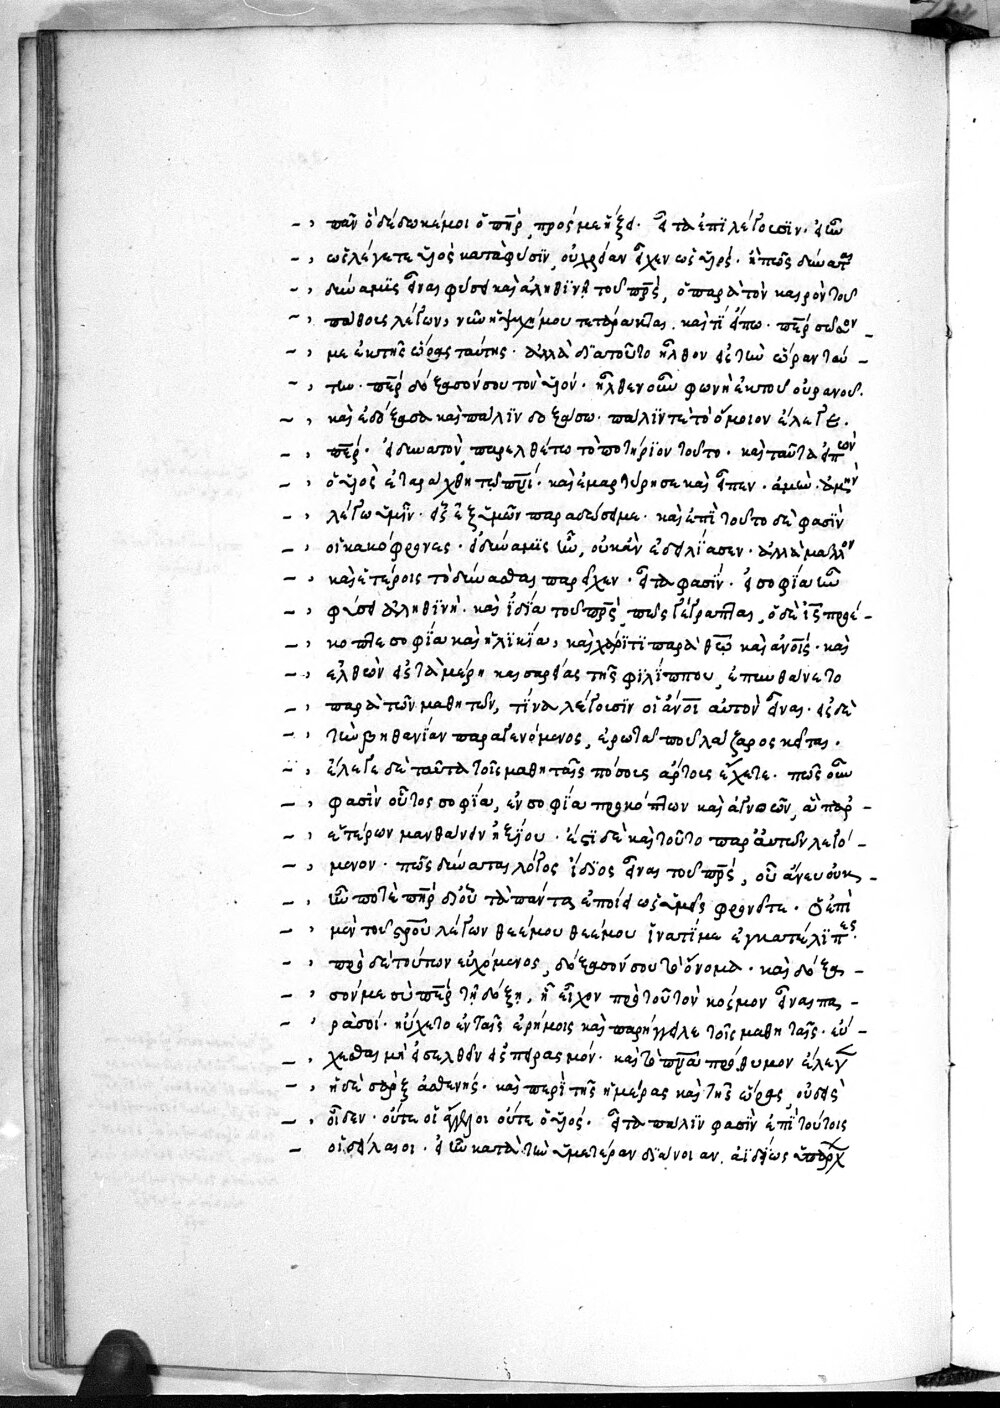 πᾶν ὃ δέδωκέ μοι ὁ πὴρ, πρός με ἥξει. εἶτα ἐπιλέγουσιν. εἰ ἦν
ὡς λέγετε υἱὸς κατὰ φύσιν, οὐ χρείαν εἶχεν ὡς υἱός. ἢ πῶς δύναται
δύναμις εἶναι φύσει καὶ ἀληθινὴ τοῦ πρς, ὁ παρὰ τὸν καιρὸν τοῦ
πάθους λέγων, νῦν ἡ ψυχή μου τετάρακται. καὶ τί εἴπω. περ σῶσον
με ἐκ τῆς ὥρας ταύτης. ἀλλὰ διὰ τοῦτο ἦλθον εἰς τὴν ὥραν ταύ
την. περ δόξασόν σου τὸν υἱόν. ἦλθεν οὖν φωνὴ ἐκ τοῦ οὐρανοῦ.
καὶ ἐδόξασα καὶ πάλιν δοξάσω. πάλιν τε τὸ ὅμοιον ἔλεγε.
περ. εἰ δυνατὸν παρελθέτω τὸ ποτήριον τοῦτο. καὶ ταῦτα εἰπὼν
ὁ υἱὸς ἐταράχθη τῷ πνι. καὶ ἐμαρτύρησε καὶ εἶπεν. ἀμὴν ἀμὴν
λέγω ὑμῖν. εἷς ἐξ ὑμῶν παραδώσει με. καὶ ἐπὶ τούτῳ δὲ φασὶν
οἱ κακόφρονες. εἰ δύναμις ἦν, οὐκ ἂν ἐδειλίασεν. ἀλλὰ μᾶλλον
καὶ ἑτέροις τὸ δύνασθαι παρεῖχεν. εἶτα φασίν. εἰ σοφία ἦν
φύσει ἀληθινὴ. καὶ ἰδία τοῦ πρς πῶς γέγραπται, ὁ δὲ ις προέ
κοπτε σοφία καὶ ἡλικία, καὶ χάριτι παρὰ θεῷ καὶ ἀνοις. καὶ
ἐλθὼν εἰς τὰ μέρη καισαρείας τῆς φιλίππου, ἐπυνθάνετο
παρὰ τῶν μαθητῶν, τίνα λέγουσιν οἱ ἀνοι αὐτὸν εἶναι. εἰς δὲ
τὴν βηθανίαν παραγενόμενος, ἐρωτᾷ ποῦ λάζαρος κεῖται.
ἔλεγε δὲ ταῦτα τοῖς μαθηταῖς πόσους ἄρτους ἔχετε. πῶς οὖν
φασὶν οὗτος σοφία, ἐν σοφία προκόπτων καὶ ἀγνοῶν, ἃ παρ
ἑτέρων μανθάνειν ἠξίου. ἔτι δὲ καὶ τοῦτο παρ' αὐτῶν λεγό
μενον. πῶς δύναται λόγος ἴδιος εἶναι τοῦ πρς, οὗ ἄνευ οὐκ
ἦν ποτὲ πὴρ δι' οὗ τὰ πάντα ἐποίει ὡς ὑμεῖς φρονεῖτε. ὁ ἐπὶ
μὲν τοῦ σροῦ λέγων θεέ μου θεέ μου ἵνα τί με ἐγκατέλιπες.
πρὸ δὲ τούτων εὐχόμενος, δόξασόν σου τὸ ὄνομα. καὶ δόξα
σόν με σὺ περ τῇ δόξη, ἣ εἶχον πρὸ τοῦ τὸν κόσμον εἶναι πα
ρὰ σοί. ηὔχετο ἐν ταῖς ἐρήμοις καὶ παρήγγελλε τοῖς μαθηταῖς. εὔ
χεσθαι μὴ εἰσελθεῖν εἰς πειρασμόν. καὶ τὸ πνα πρόθυμον ἔλεγεν
ἡ δὲ σὰρξ ἀσθενής. καὶ περὶ τῆς ἡμέρας καὶ τῆς ὥρας, οὐδεὶς
οἶδεν. οὔτε οἱ ἄγγελοι οὔτε ὁ υἱός. εἶτα πάλιν φασὶν ἐπὶ τούτοις
οἱ δείλαιοι. εἰ ἦν κατὰ τὴν ὑμετέραν διάνοιαν. ἀϊδίως ὑπάρχων